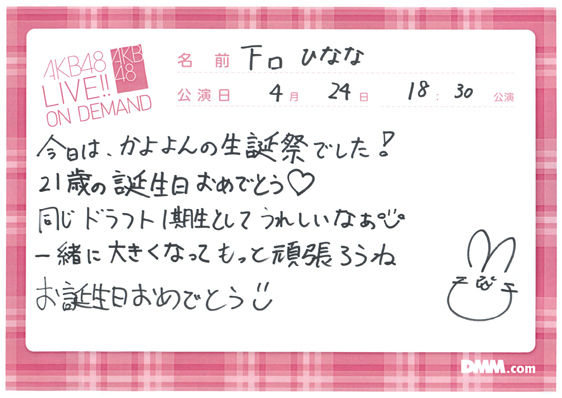 AKB48
LIVE!!
ON DEMAND
AKB
48
名前 下口 ひなな
公演日 4月 24日 18:30 公演
今日は、かよよんの生誕祭でした!
21歳の誕生日おめでとう♡
同じドラフト1期生としてうれしいなぁ
一緒に大きくなってもっと頑張ろうね
お誕生日おめでとう
DMM.com